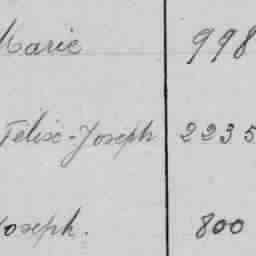 Marie 998
Félix-Joseph 2235
Joseph. 800